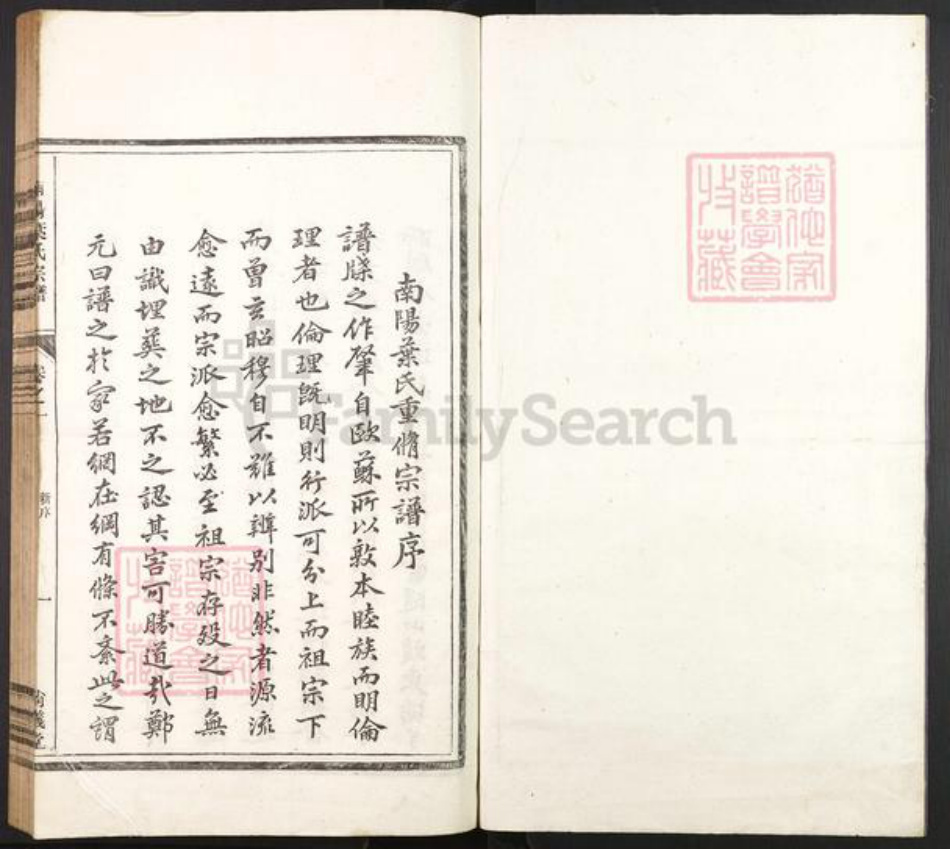 南陽葉氏重脩宗譜序
譜牒之作肇自歐蘇所以敦本睦族而明倫
理者也倫理旣明則行派可分上而祖宗下
而曾玄昭穆自不難以辨别非然者源流
愈遠而宗派愈繁必至祖宗存歿之日無
由識埋葬之地不之認其害可勝道哉鄭
元曰譜之於家若網在綱有條不紊此之謂
南陽葉氏宗譜
卷之一
新序
一
尙義堂
譜學會
收藏
譜學會
收藏
FamilySearch